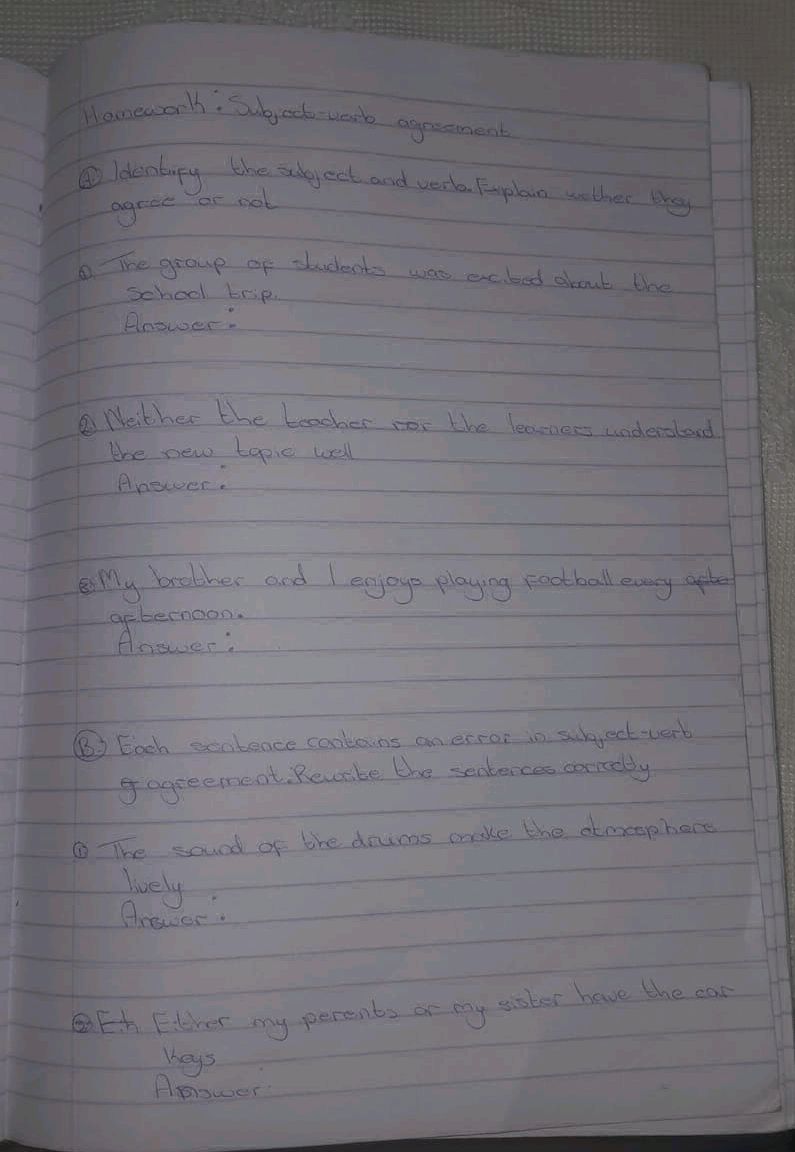 Homework: Subject-verb agreement
(A) Identify the subject and verb. Explain wether they
agree or not
① The group of students was excited about the
School trip.
Answer:
② Neither the teacher nor the learners understand
the new topic well
Answer:
③ My brother and I enjoys playing football every afte
afternoon.
Answer:
(B) Each sentence contains an error in subject-verb
agreement. Rewrite the sentences correctly
① The sound of the drums make the atmosphere
lively
Answer:
② Eth Either my parents or my sister have the car
Keys
Answer: